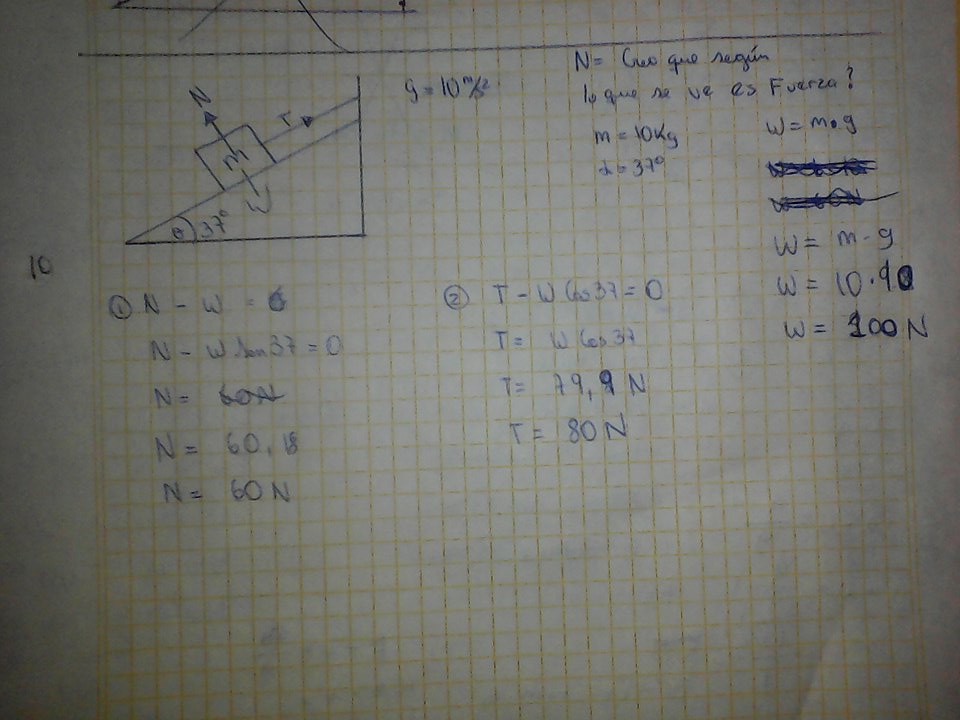 N= Creo que según
lo que se ve es Fuerza?
g = 10 m/s²
m = 10Kg
α = 37°
W = m•g
N
T
m
W
θ 37°
10
W = m · g
W = 10 · 10
W = 100 N
① N - W = 0
N - W Sen 37 = 0
N = 60N
N = 60,18
N = 60 N
② T - W Cos 37 = 0
T = W Cos 37
T = 79,9 N
T = 80 N